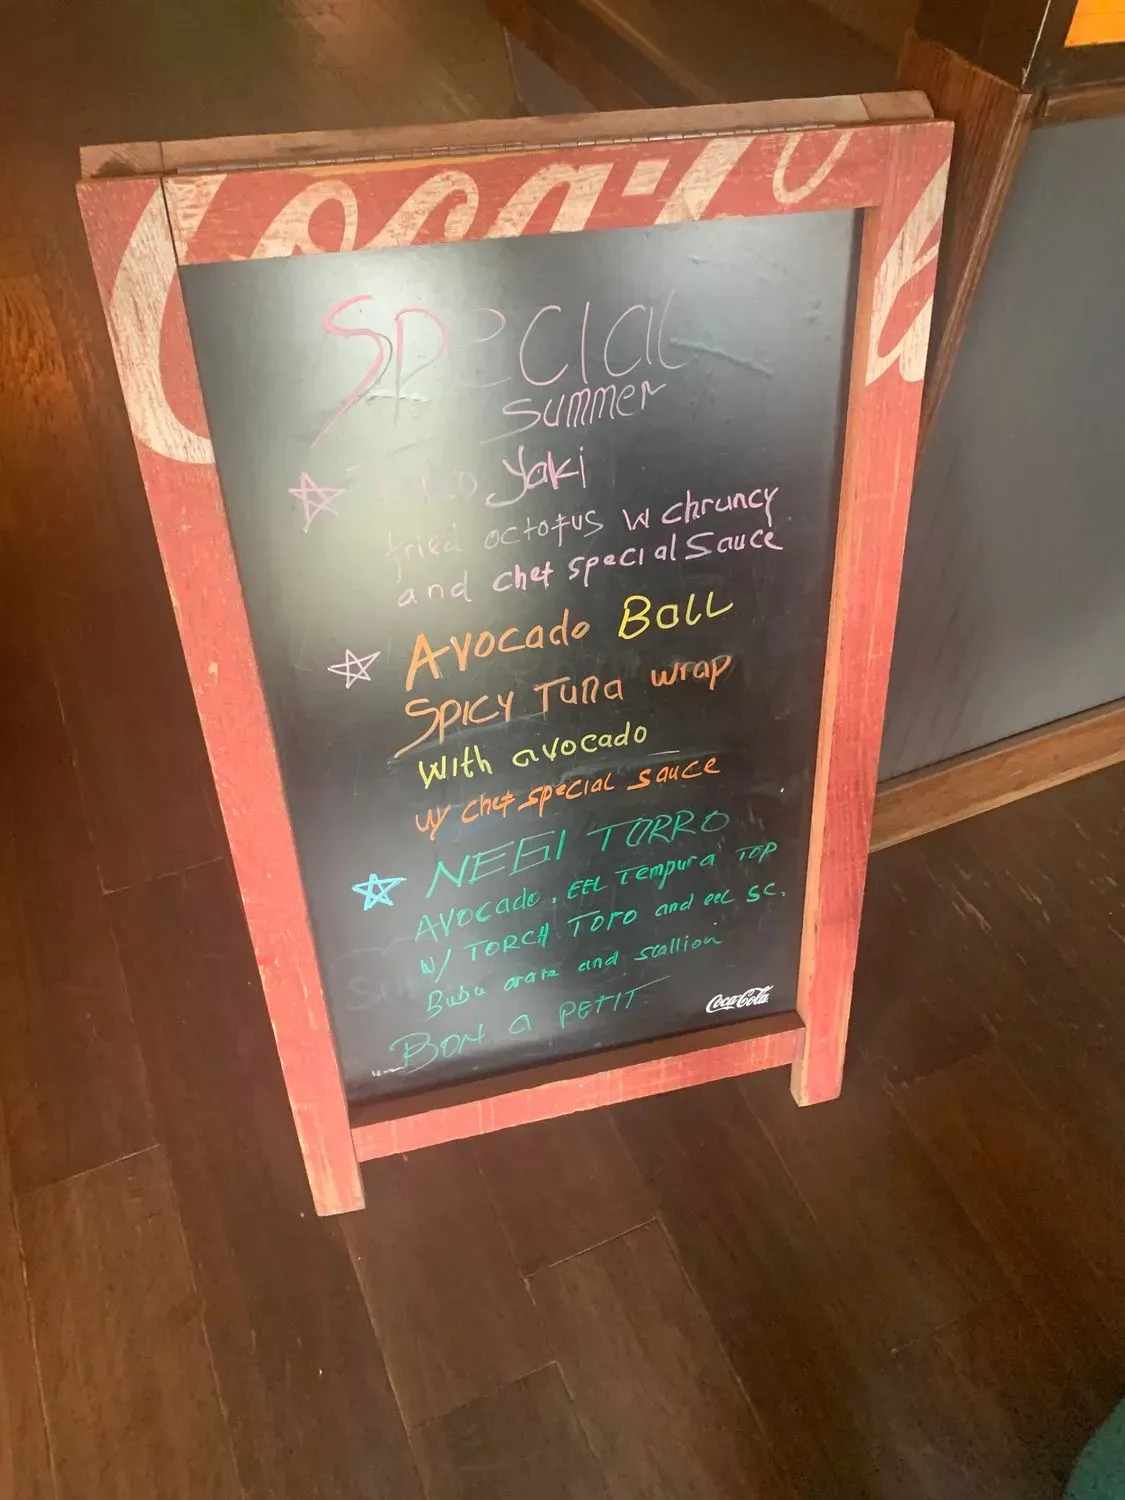 Coca-Cola
SPECIAL
summer
Yaki
fried octopus w chruncy
and chef special Sauce
Avocado Ball
SPICY Tuna wrap
with avocado
w/ chef special sauce
NEGI TORRO
Avocado, EEL Tempura TOP
w/ TORCH TORO and eel sc.
Bubu arare and scallion
BON a PETIT
Coca-Cola